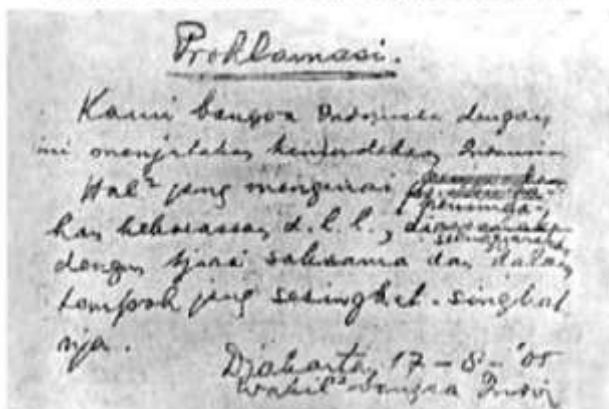 Proklamasi.
Kami bangsa Indonesia dengan
ini menjatakan kemerdekaan Indonesia
Hal² jang mengenai
pemindahan
kan kekoeasaan d.l.l.,
diselenggarakan
dengan tjara saksama dan dalam
tempoh jang sesingkat-singkat
nja.
Djakarta, 17 - 8 - '05
Wakil² bangsa Indon